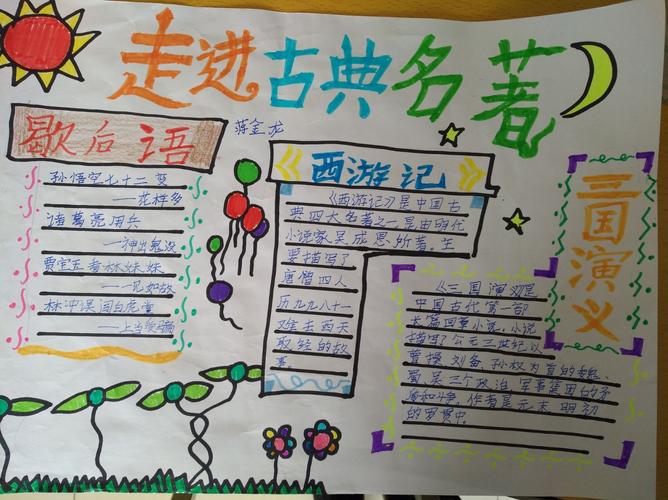 走进古典名著
蒋金龙
歇后语
孙悟空七十二变
——花样多
诸葛亮用兵
——神出鬼没
贾宝玉看林妹妹
——一见如故
林冲误闯白虎堂
——上当受骗
西游记
《西游记》是中国古
典四大名著之一是由明代
小说家吴成恩所著。主
要描写了
唐僧四人
历九九八十一
难去西天
取经的故
事。
三国演义
《三国演义》是
中国古代第一部
长篇回章小说。小说
描写了公元三世纪以
曹操、刘备、孙权为首的魏、
蜀、吴三个政治、军事集团的矛
盾和斗争。作者是元末明初
的罗贯中。